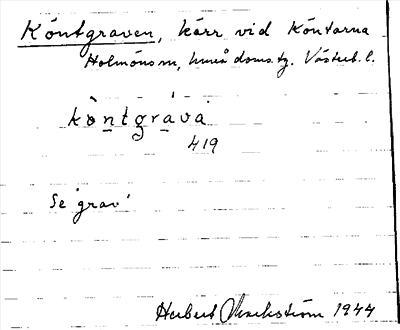 Köntgraven, kärr vid Köntarna
Holmöns sn, Umeå doms.tg. Västerb. l.
kòntgráva
419
Se 'grav'
Herbert Markström 1944